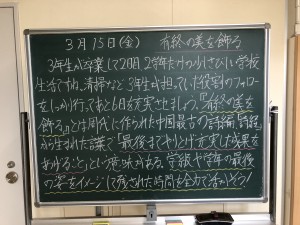 3月15日(金) 有終の美を飾る
3年生が卒業して2日。2学年だけの少しさびしい学校
生活ですね。清掃など、3年生が担っていた役割のフォロー
をしっかり行って、あと6日を充実させましょう。『有終の美を
飾る』とは周代に作られた中国最古の詩編「詩経」
から生まれた言葉で「最後までやりとげ充実した成果を
おさめること」という意味がある。学級や学年の最後
の姿をイメージして残された時間を全力で活かそう!